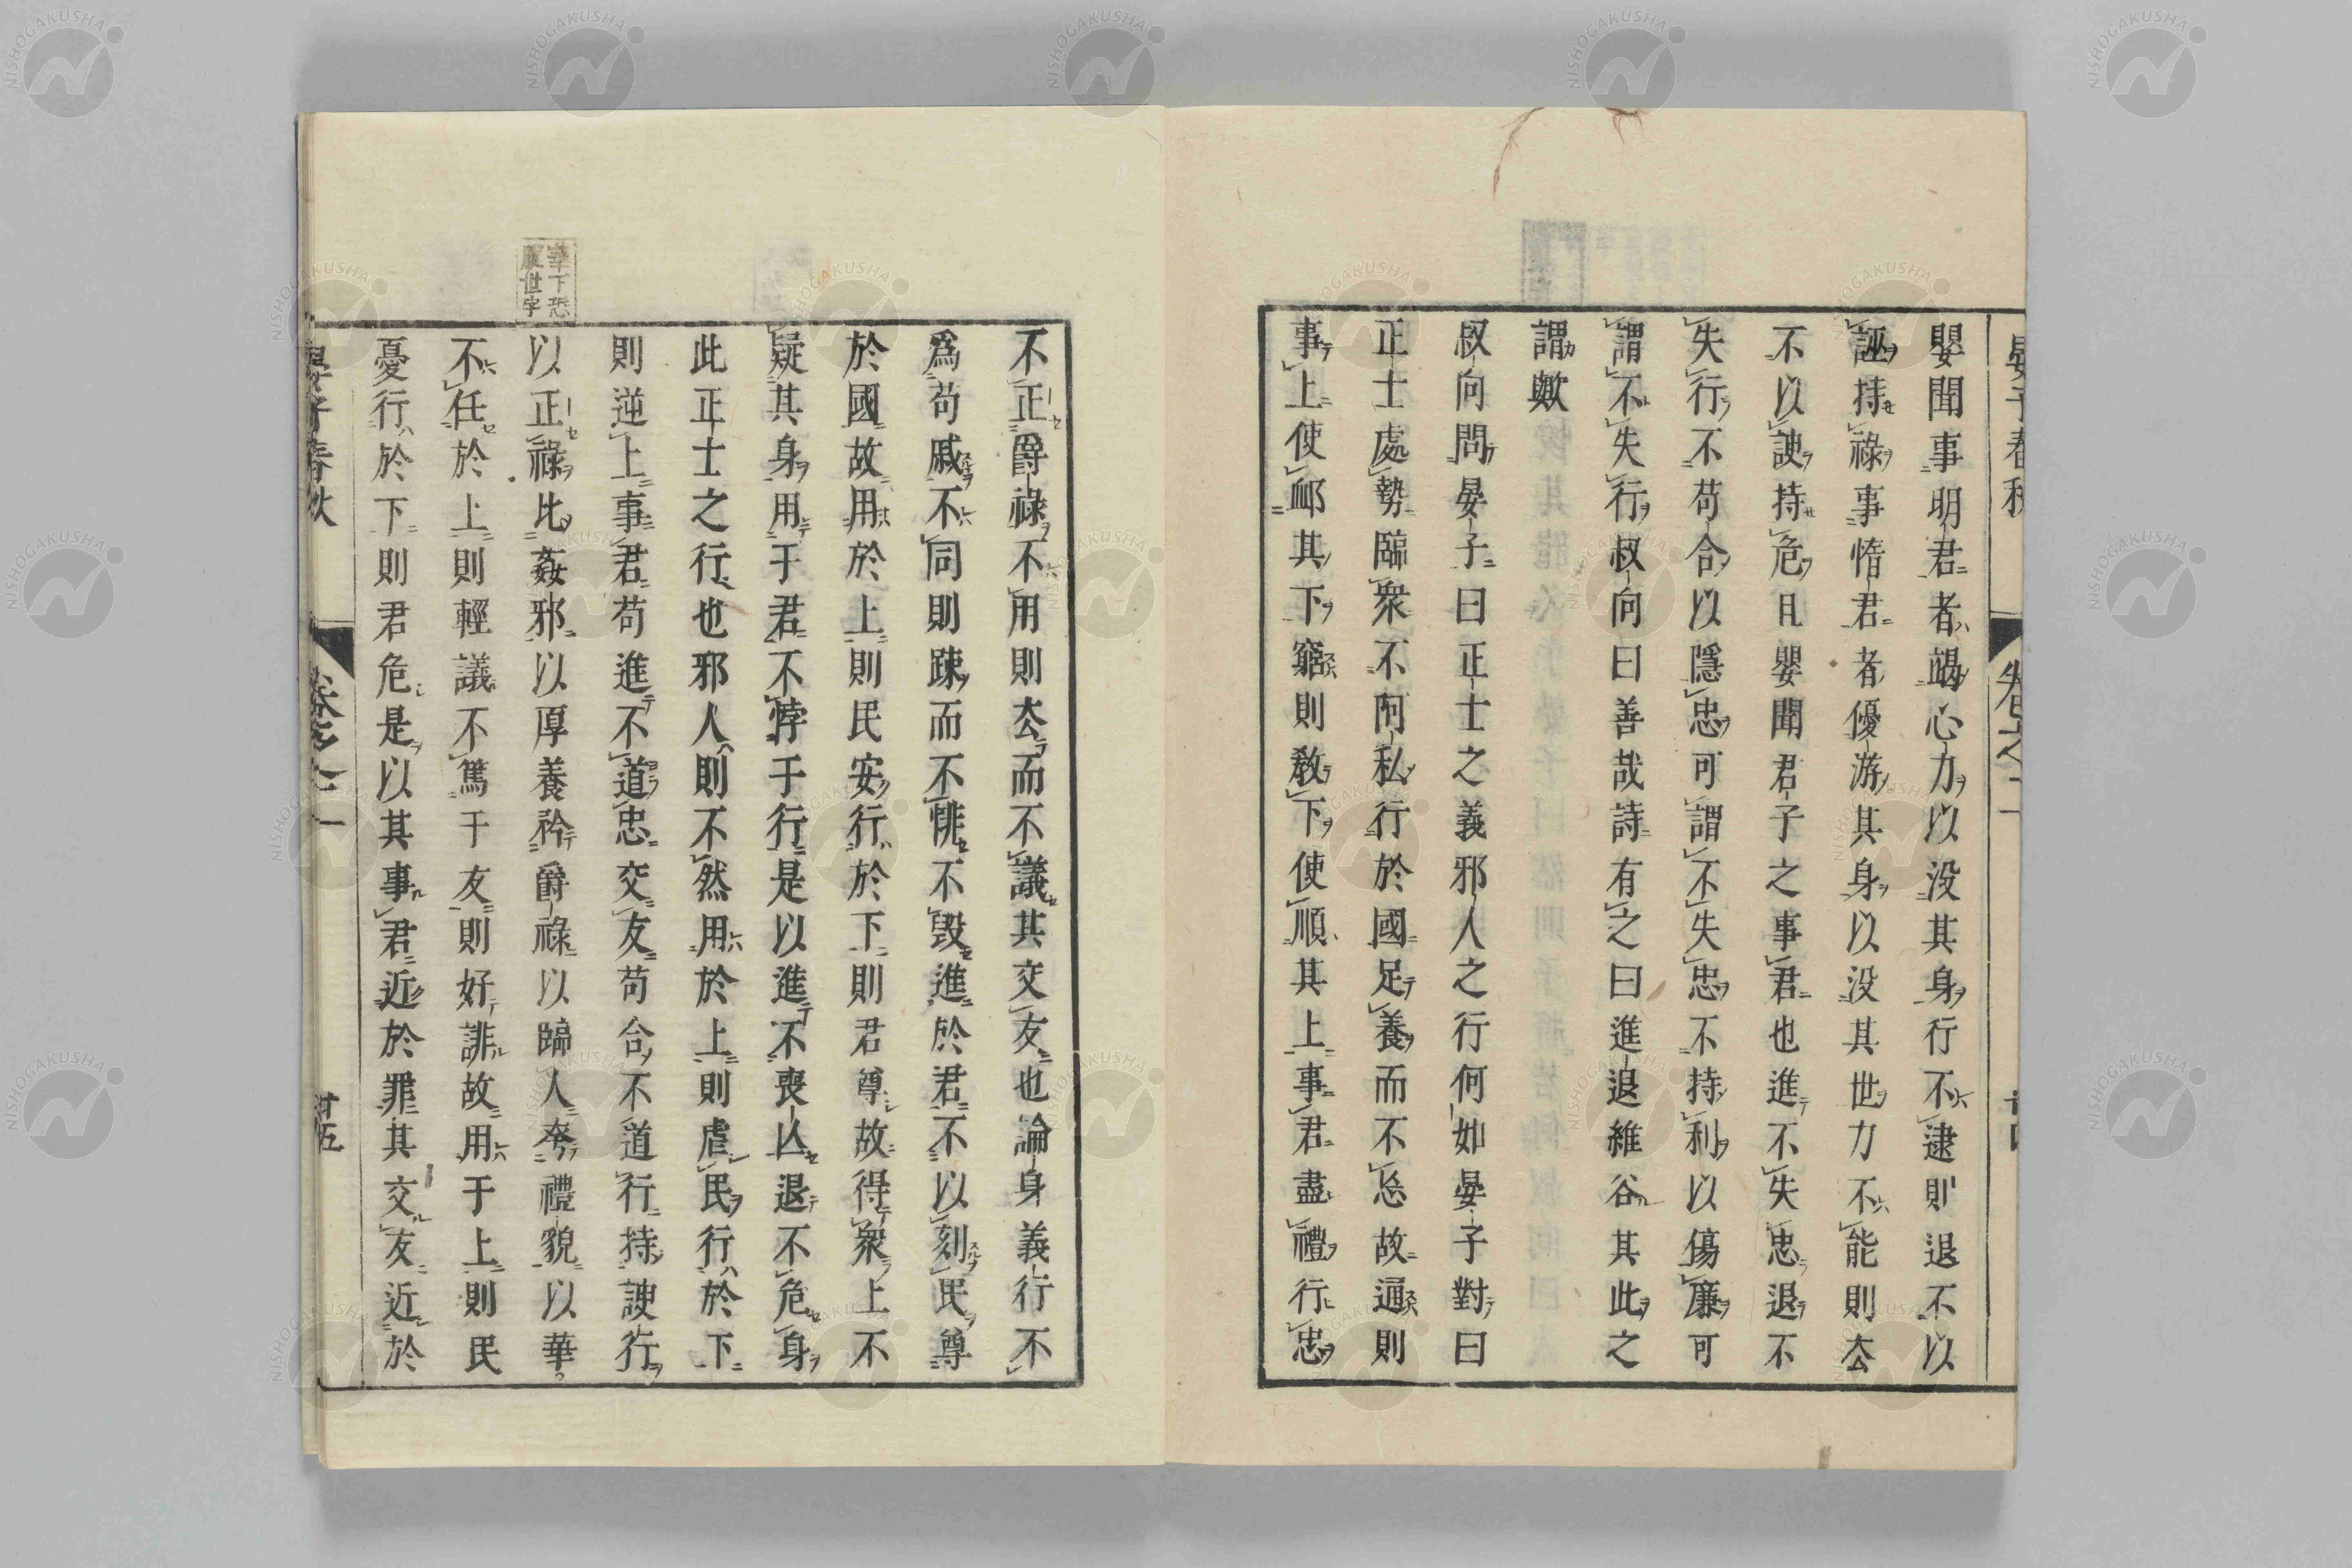 嬰聞事明君者竭心力以没其身行不逮則退不以
誣持祿事惰君者優游其身以没其世力不能則厺
不以諛持危且嬰聞君子之事君也進不失忠退不
失行不苟合以隱忠可謂不失忠不持利以傷廉可
謂不失行叔向曰善哉詩有之曰進退維谷其此之
謂歟
叔向問晏子曰正士之義邪人之行何如晏子對曰
正士處勢臨衆不阿私行於國足養而不忘故通則
事上使卹其下窮則敎下使順其上事君盡禮行忠
不正爵祿不用則厺而不議其交友也論身義行不
爲苟戚不同則踈而不悱不毀進於君不以刻民尊
於國故用於上則民安行於下則君尊故得衆上不
疑其身用于君不悖于行是以進不喪亾退不危身
此正士之行也邪人則不然用於上則虐民行於下
則逆上事君苟進不道忠交友苟合不道行持諛行
以正祿比姦邪以厚養矜爵祿以臨人夸禮貌以華
不任於上則輕議不篤于友則好誹故用于上則民
憂行於下則君危是以其事君近於罪其交友近於
華下恐
脱世字
晏子春秋
卷之二
廿五
NISHOGAKUSHA